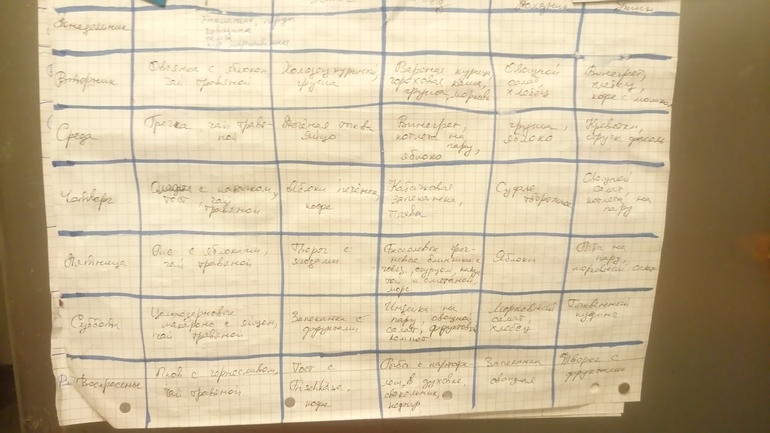 Полдник
Ужин
Понедельник
Вторник
Овсянка с яблоком,
чай травяной
Холодец куриный,
груша
Вареная курица,
гороховая каша,
груша, морковь
Овощной
салат,
хлебец
Винегрет,
хлебец,
кофе с молок.
Среда
Гречка, чай травя-
ной
Печёная тыква
яйцо
Винегрет,
котлета на
пару,
яблоко
груша,
яблоко
Креветки,
Четверг
с
тост, чай
травяной
Яблоки печёные,
кофе
Кабачковая
запеканка,
Суфле
творожное
Овощной
салат,
котлета на
пару
Пятница
Рис с яблоками,
чай травяной
Пирог с
ягодами
греч-
невые блинчики с
огурцом,
и сметаной,
морс
Яблоки
Рыба на
пару,
морковный
Суббота
Цельнозерновые
макароны с яйцом,
чай травяной
Запеканка с
фруктами
Индейка на
пару, овощной
салат, фруктовый
компот
Морковный
салат,
хлебец
Тыквенный
пудинг
Воскресенье
Плов с черносливом,
чай травяной
Тост с
кофе
Рыба с картофе-
лем в духовке,
свекольник,
кефир
Запеканка
овощная
Творог с
фруктами